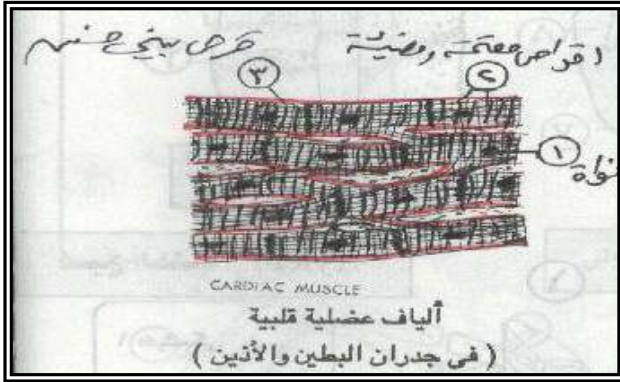 اقراص معتمة ومضيئة قرص بيني
٣ ٢
١
نواة
CARDIAC MUSCLE
ألياف عضلية قلبية
( فى جدران البطين والأذين )